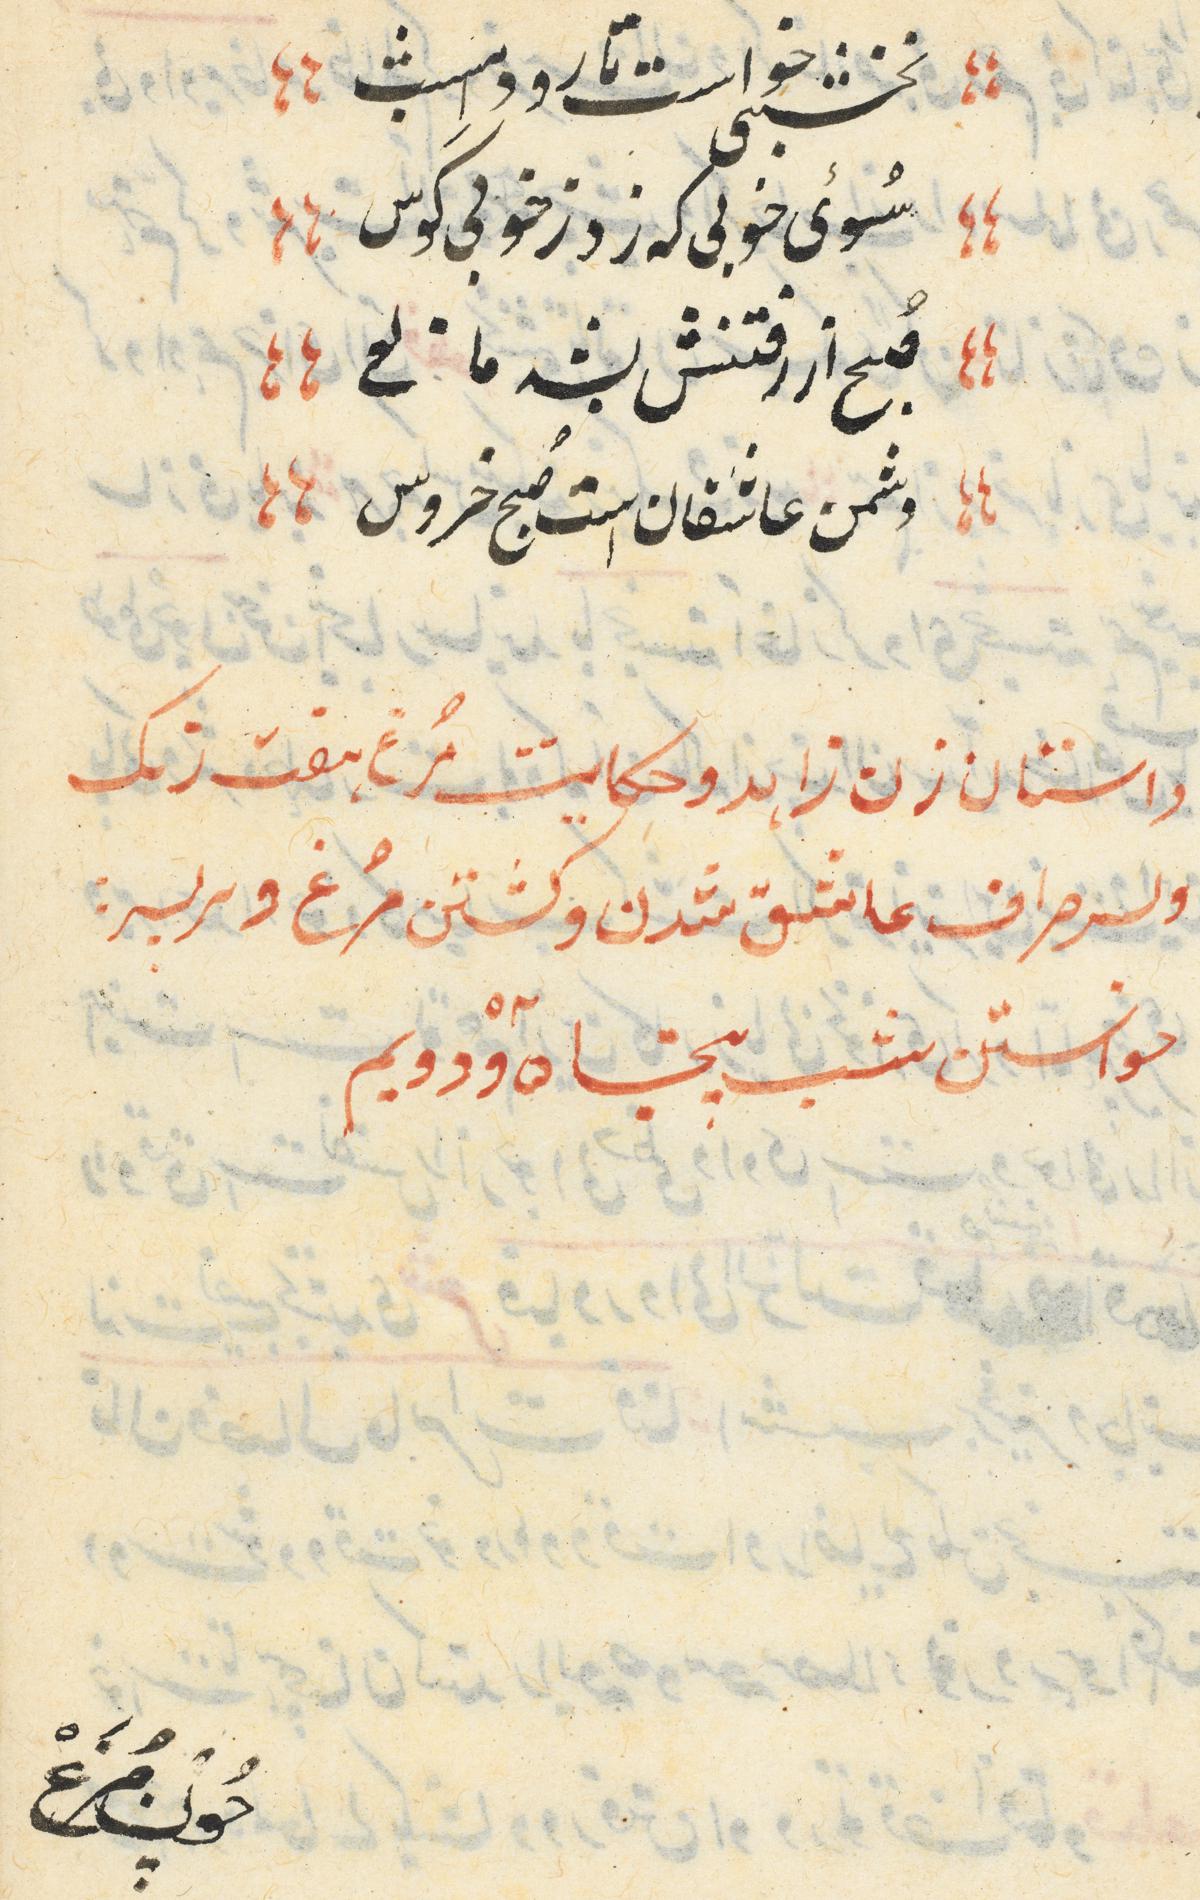 نخشبی خواست تا رود امشب
سُوئ خوبی که زد ز خوبی کوس
صُبح از رفتنش بشد مانع
دشمن عاشقان است صُبح خروس
داستان زن زاهد و حکایت مُرغ هفت رنک
و پسر صراف عاشق شدن و کشتن مُرغ و سر بسر
خواستن شب پنجاه و دویم
چُون مُرغ